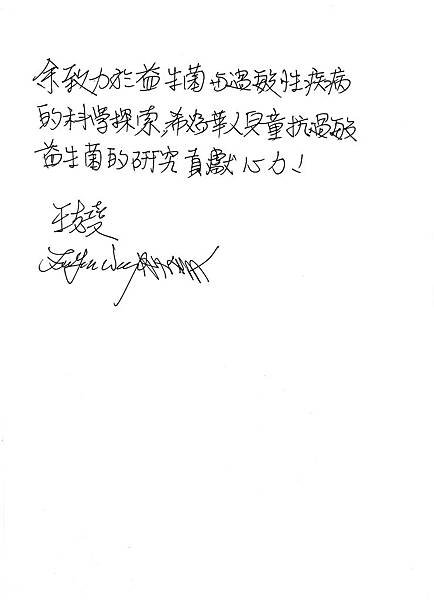 余致力於益生菌与過敏性疾病
的科學探索,希為華人兒童抗過敏
益生菌的研究貢獻心力!
王